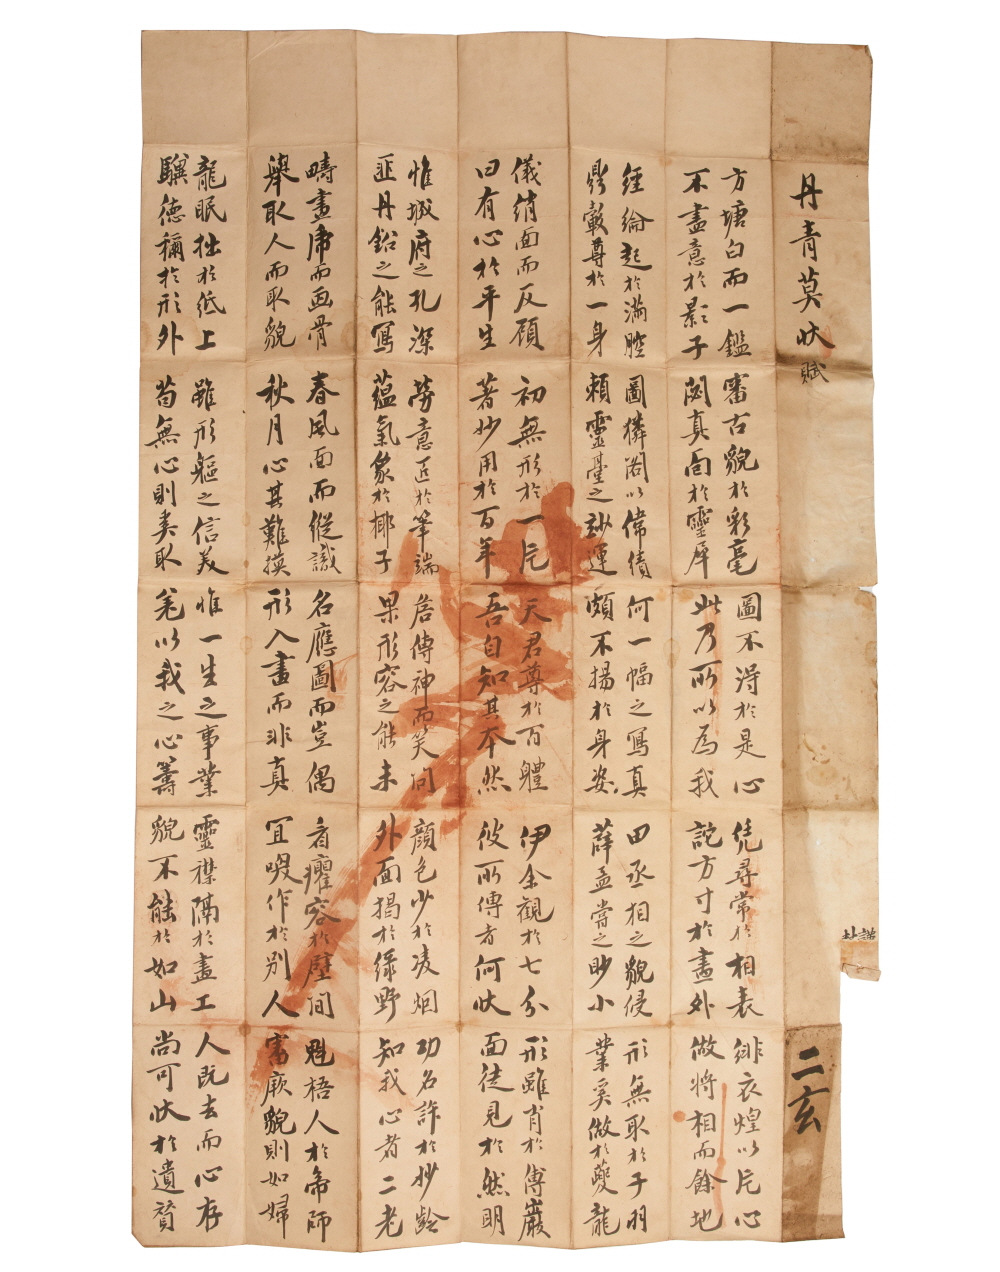 丹青莫狀賦
二玄
方塘白而一鑑
不盡意於影子
審古貌於彩毫
闕真面於靈犀
圖不得於是心
此乃所以為我
凭尋常於相表
詑方寸於畫外
緋衣煌以片心
做將相而餘地
經綸起於滿腔
鼎轂尊於一身
圖獜閣以偉績
賴靈臺之妙運
何一幅之寫真
頗不揚於身姿
田丞相之貌侵
薛孟嘗之眇小
形無取於子羽
業奚做於夔龍
儀綃面而反顧
曰有心於平生
初無形於一片
著妙用於百年
天君尊於百體
吾自知其本然
伊余觀於七分
彼所傳者何狀
形雖肖於傅巖
面徒見於然明
惟城府之孔深
匪丹鉛之能寫
勞意匠於筆端
蘊氣象於椰子
詹傳神而笑問
果形容之能未
顔色少於凌烟
外面揭於綠野
功名許於妙齡
知我心者二老
疇畫席而画骨
舉取人而取貌
春風面而縱識
秋月心其難摸
名應圖而豈偶
形入畫而非真
看癯容於壁間
宜唳作於別人
魁梧人於帝師
富厥貌則如婦
龍眠拙於紙上
驥德稱於形外
雖形軀之信美
苟無心則奚取
惟一生之事業
羌以我之心籌
靈襟隔於畫工
貌不能於如山
人既去而心存
尚可狀於遺贊